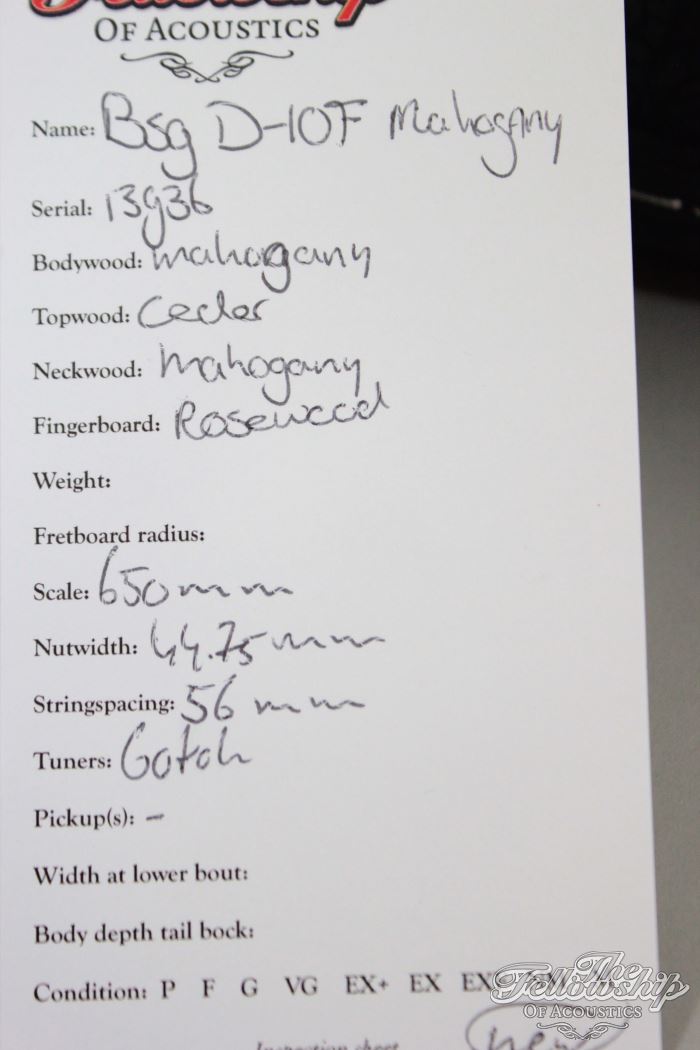 Fellowship
OF ACOUSTICS
Name: Bsg D-10F Mahogany
Serial: 13g36
Bodywood: mahogany
Topwood: Ceder
Neckwood: Mahogany
Fingerboard: Rosewood
Weight:
Fretboard radius:
Scale: 650 mm
Nutwidth: 44.75 mm
Stringspacing: 56 mm
Tuners: Gotoh
Pickup(s): -
Width at lower bout:
Body depth tail bock:
Condition: P F G VG EX+ EX
Inspection sheet
New
The
Fellowship
OF ACOUSTICS